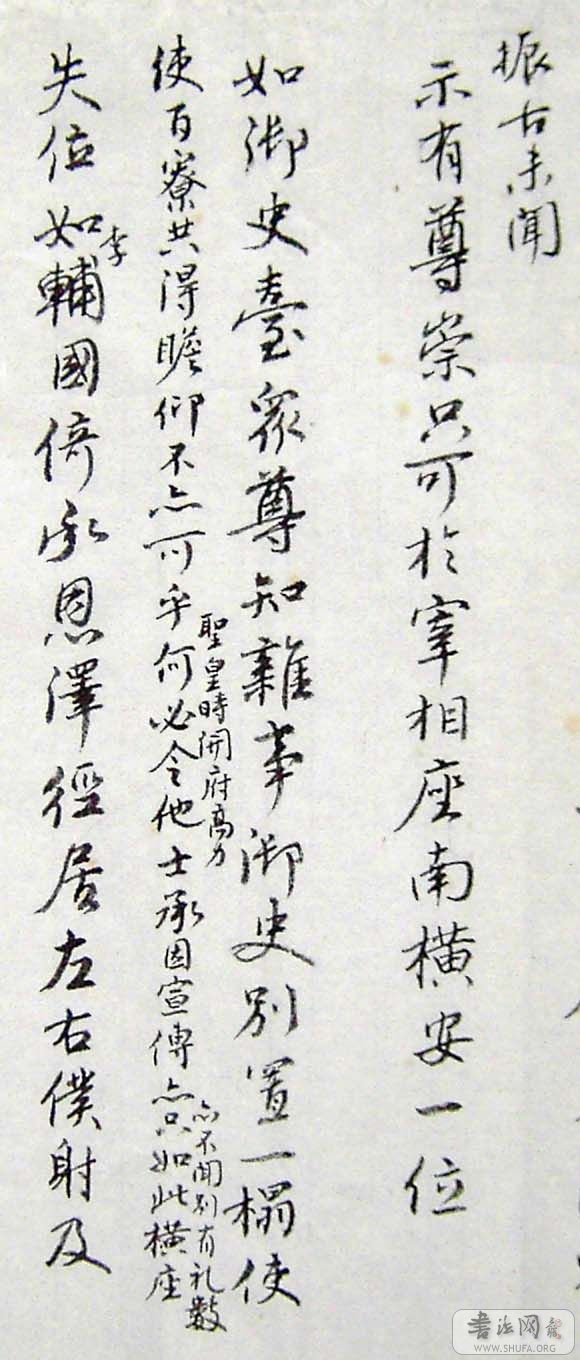 振古未聞
示有尊崇只可於宰相座南橫安一位
如御史臺眾尊知雜事御史別置一榻使
聖皇時開府高力
亦不聞別有礼數
使百寮共得瞻仰不亦可乎何必令他士承因宣傳亦只如此橫座
失位如李輔國倚承恩澤徑居左右僕射及
書法网
WWW.SHUFA.ORG